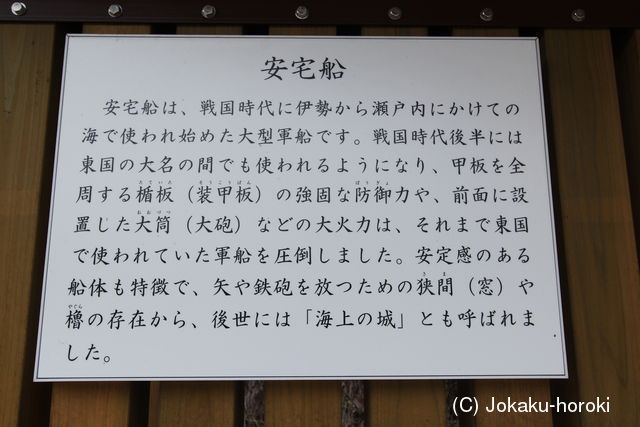 安宅船
安宅船は、戦国時代に伊勢から瀬戸内にかけての
海で使われ始めた大型軍船です。戦国時代後半には
東国の大名の間でも使われるようになり、甲板を全
周する楯板（装甲板）の強固な防御力や、前面に設
置した大筒（大砲）などの大火力は、それまで東国
で使われていた軍船を圧倒しました。安定感のある
船体も特徴で、矢や鉄砲を放つための狭間（窓）や
櫓の存在から、後世には「海上の城」とも呼ばれま
した。
(C) Jokaku-horoki